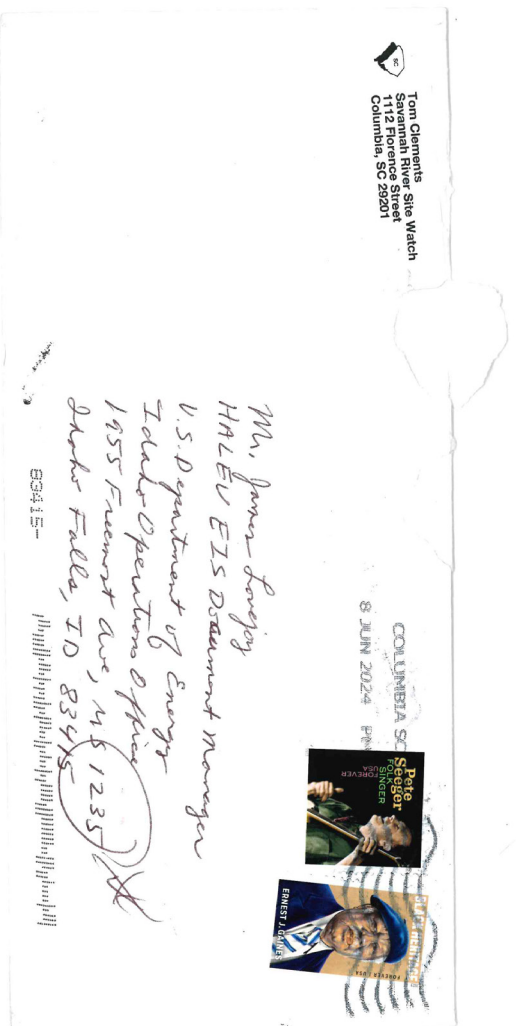 SC
Tom Clements
Savannah River Site Watch
1112 Florence Street
Columbia, SC 29201
COLUMBIA SC
8 JUN 2024 PM
Pete
Seeger
FOLK
SINGER
FOREVER
USA
BLACK HERITAGE
ERNEST J. GAINES
FOREVER / USA
Mr. James Lovejoy
HALEU EIS Document Manager
U.S. Department of Energy
Idaho Operations Office
1955 Freemont Ave, MS 1235
Idaho Falls, ID 83415